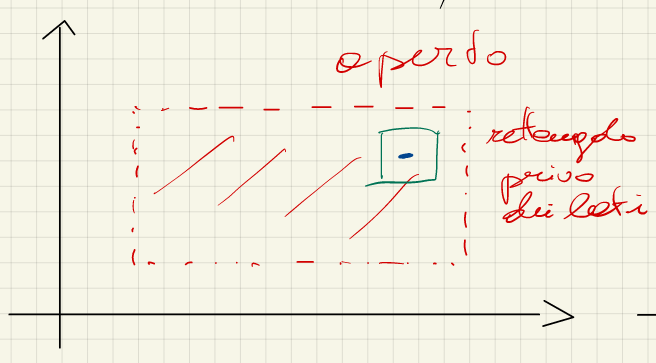 aperto
retangolo
privo
dei lati